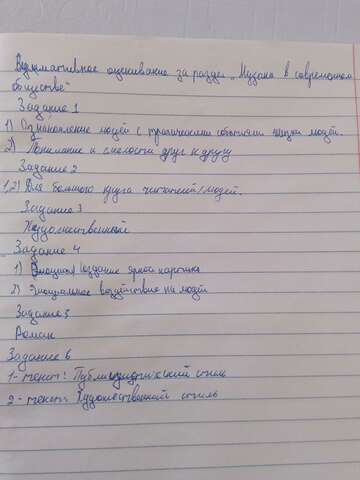 Суммативное оценивание за раздел „Музыка в современном
обществе"
Задание 1
1) Ознакомление людей с трагическими событиями жизни людей.
2) Понимание и смелости друг к другу
Задание 2
1,2) Для большого круга читателей/людей.
Задание 3
Художественный
Задание 4
1) создание яркой картины
2) Эмоциальное воздействие на людей
Задание 5
Роман
Задание 6
1 - текст: Публицистический стиль
2 - текст: Художественный стиль